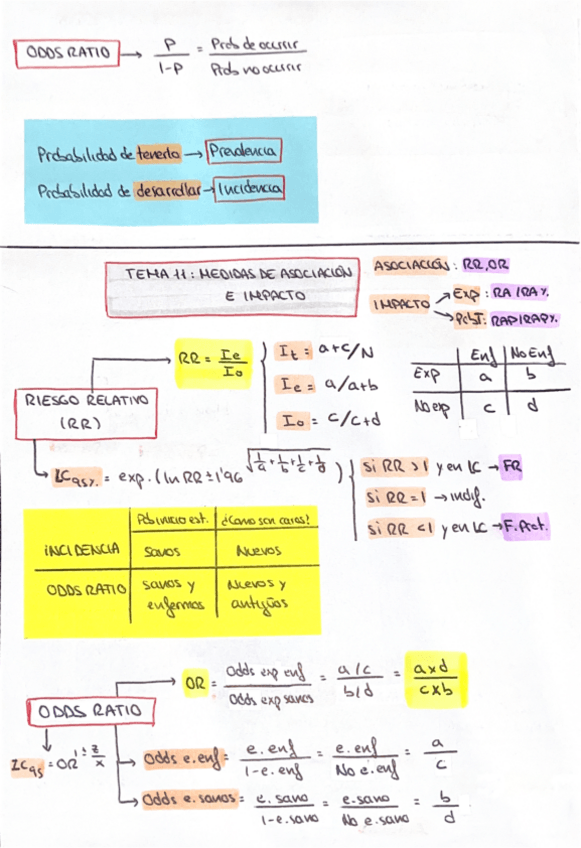 ODDS RATIO → P / 1-P = Prob de ocurrir / Prob no ocurrir
Probabilidad de tenerla → Prevalencia
Probabilidad de desarrollar → Incidencia
TEMA 11: MEDIDAS DE ASOCIACIÓN
E IMPACTO
ASOCIACIÓN: RR, OR
IMPACTO → Exp: RA/RA%
→ Pobl: RAP/RAP%
RIESGO RELATIVO
(RR)
RR = Ie / Io
It = a+c/N
Ie = a/a+b
Io = c/c+d
Enf No Enf
Exp a b
No exp c d
IC95%. = exp. (ln RR ± 1'96 √1/a + 1/b + 1/c + 1/d)
Si RR >1 y en IC → FR
Si RR = 1 → indif.
Si RR <1 y en IC → F. Prot.
Pob inicio est. ¿Cómo son casos?
INCIDENCIA Sanos Nuevos
ODDS RATIO Sanos y enfermos Nuevos y antiguos
OR = Odds exp enf / Odds exp sanos = a/c / b/d = axd / cxb
ODDS RATIO
IC95 = OR 1 ± z/x
Odds e.enf = e.enf / 1-e.enf = e.enf / No e.enf = a / c
Odds e.sanos = e.sano / 1-e.sano = e.sano / No e.sano = b / d